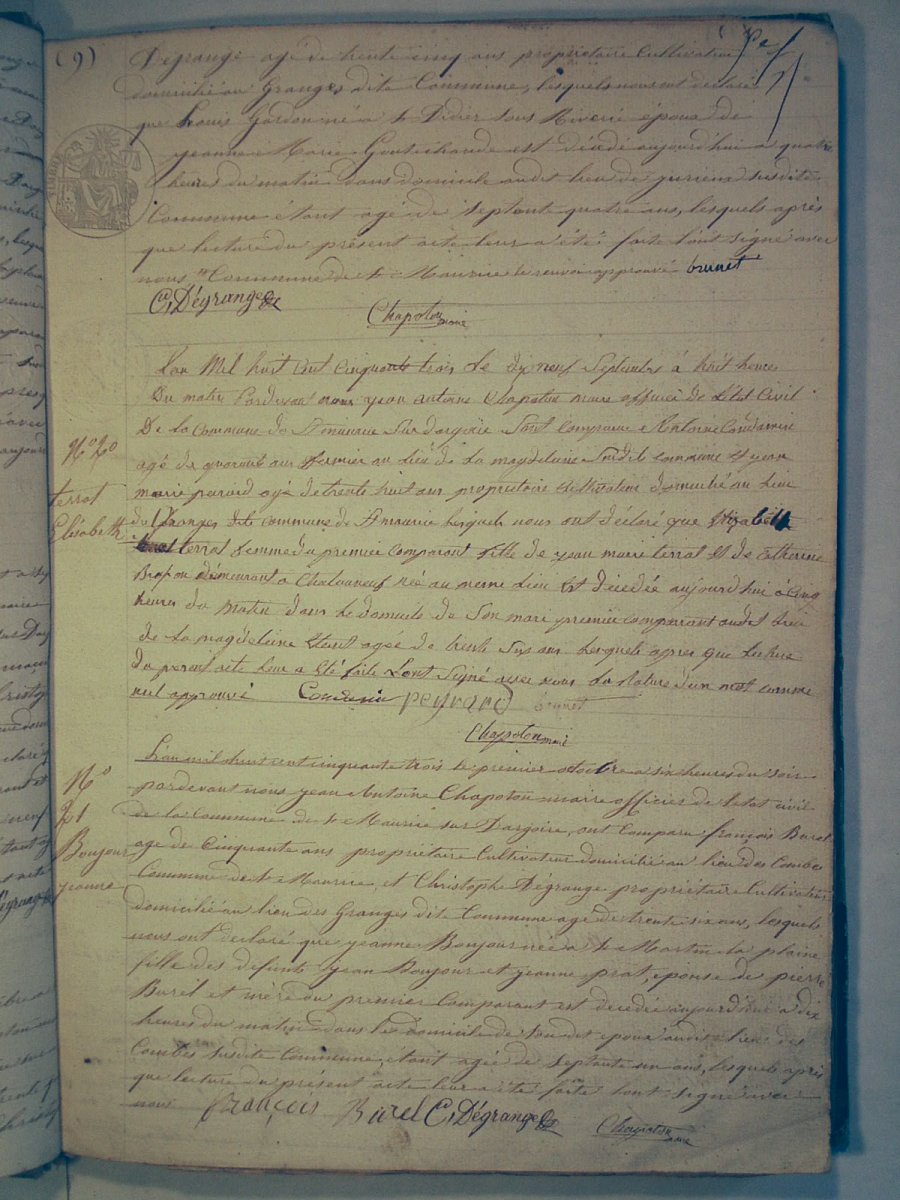 (9)
Dégrange agé de trente cinq ans propriétaire Cultivateur
domicilié au Granges dite Commune, lesquels nous ont déclaré
que Louis Gordon né a St Didier sous Riverie époux de
jeanne Marie Goutechaude est décédé aujourd'hui a quatre
heures du matin dans domicile audit lieu de susdite
Commune étant agé de Septante quatre ans, lesquels après
que lecture du présent acte leur a été faite l'ont signé avec
nous Commune de St Maurice le renvoi approuvé brunet
C, Dégrange
Chapoton maire
L'an Mil huit cent cinquante trois Le dix neuf Septembre à huit heures
Du matin Pardevant nous jean antoine Chapoton maire officier de L'état Civil
De La Commune de St maurice Sur dargoire Sont comparu Antoine Condamin
agé de quarante ans fermier au Lieu de La magdelaine Susdite commune et jean
marie peyrard agé de trente huit ans propriétaire Cultivateur domicilié au Lieu
No 20
terrat
Elisabeth
du Granges dite commune de St maurice Lesquels nous ont déclaré que Elizabeth
terrat femme du premier comparant fille de jean marie terrat Et de Catherine
demeurant a Chateauneuf née au meme Lieu Est décédée aujourd'hui à cinq
heures du matin dans Le domicile de Son mari premier comparant audit Lieu
de La magdelaine Etant agée de trente Six ans Lesquels apres que Lecture
du present acte Leur a Eté faite L'ont Signé avec nous La rature d'un mot comme
nul approuvé Condamin peyrard brunet
Chapoton maire
No
21
Bonjour
jeanne
L'an mil huit cent cinquante trois le premier octobre a six heures du soir
pardevant nous jean Antoine Chapoton maire officier de l'état civil
de la Commune de St Maurice sur Dargoire, ont Comparu françois Burel
age de Cinquante ans propriétaire Cultivateur domicilié au lieu des Combes
Commune de St Maurice, et Christophe Dégrange propriétaire Cultivateur
domicilié au lieu des Granges dite Commune age de trente six ans, lesquels
nous ont déclaré que jeanne Bonjour née a St Martin la plaine
fille des défunts jean Bonjour et jeanne prat, épouse de pierre
Burel et mère du premier Comparant est décédée aujourd'hui a dix
heures du matin dans le domicile de son dit époux audit lieu des
Combes susdite Commune, étant agée de septante un ans, lesquels après
que lecture du présent acte leur a été faite l'ont signé avec
nous françois Burel C, Dégrange Chapoton maire